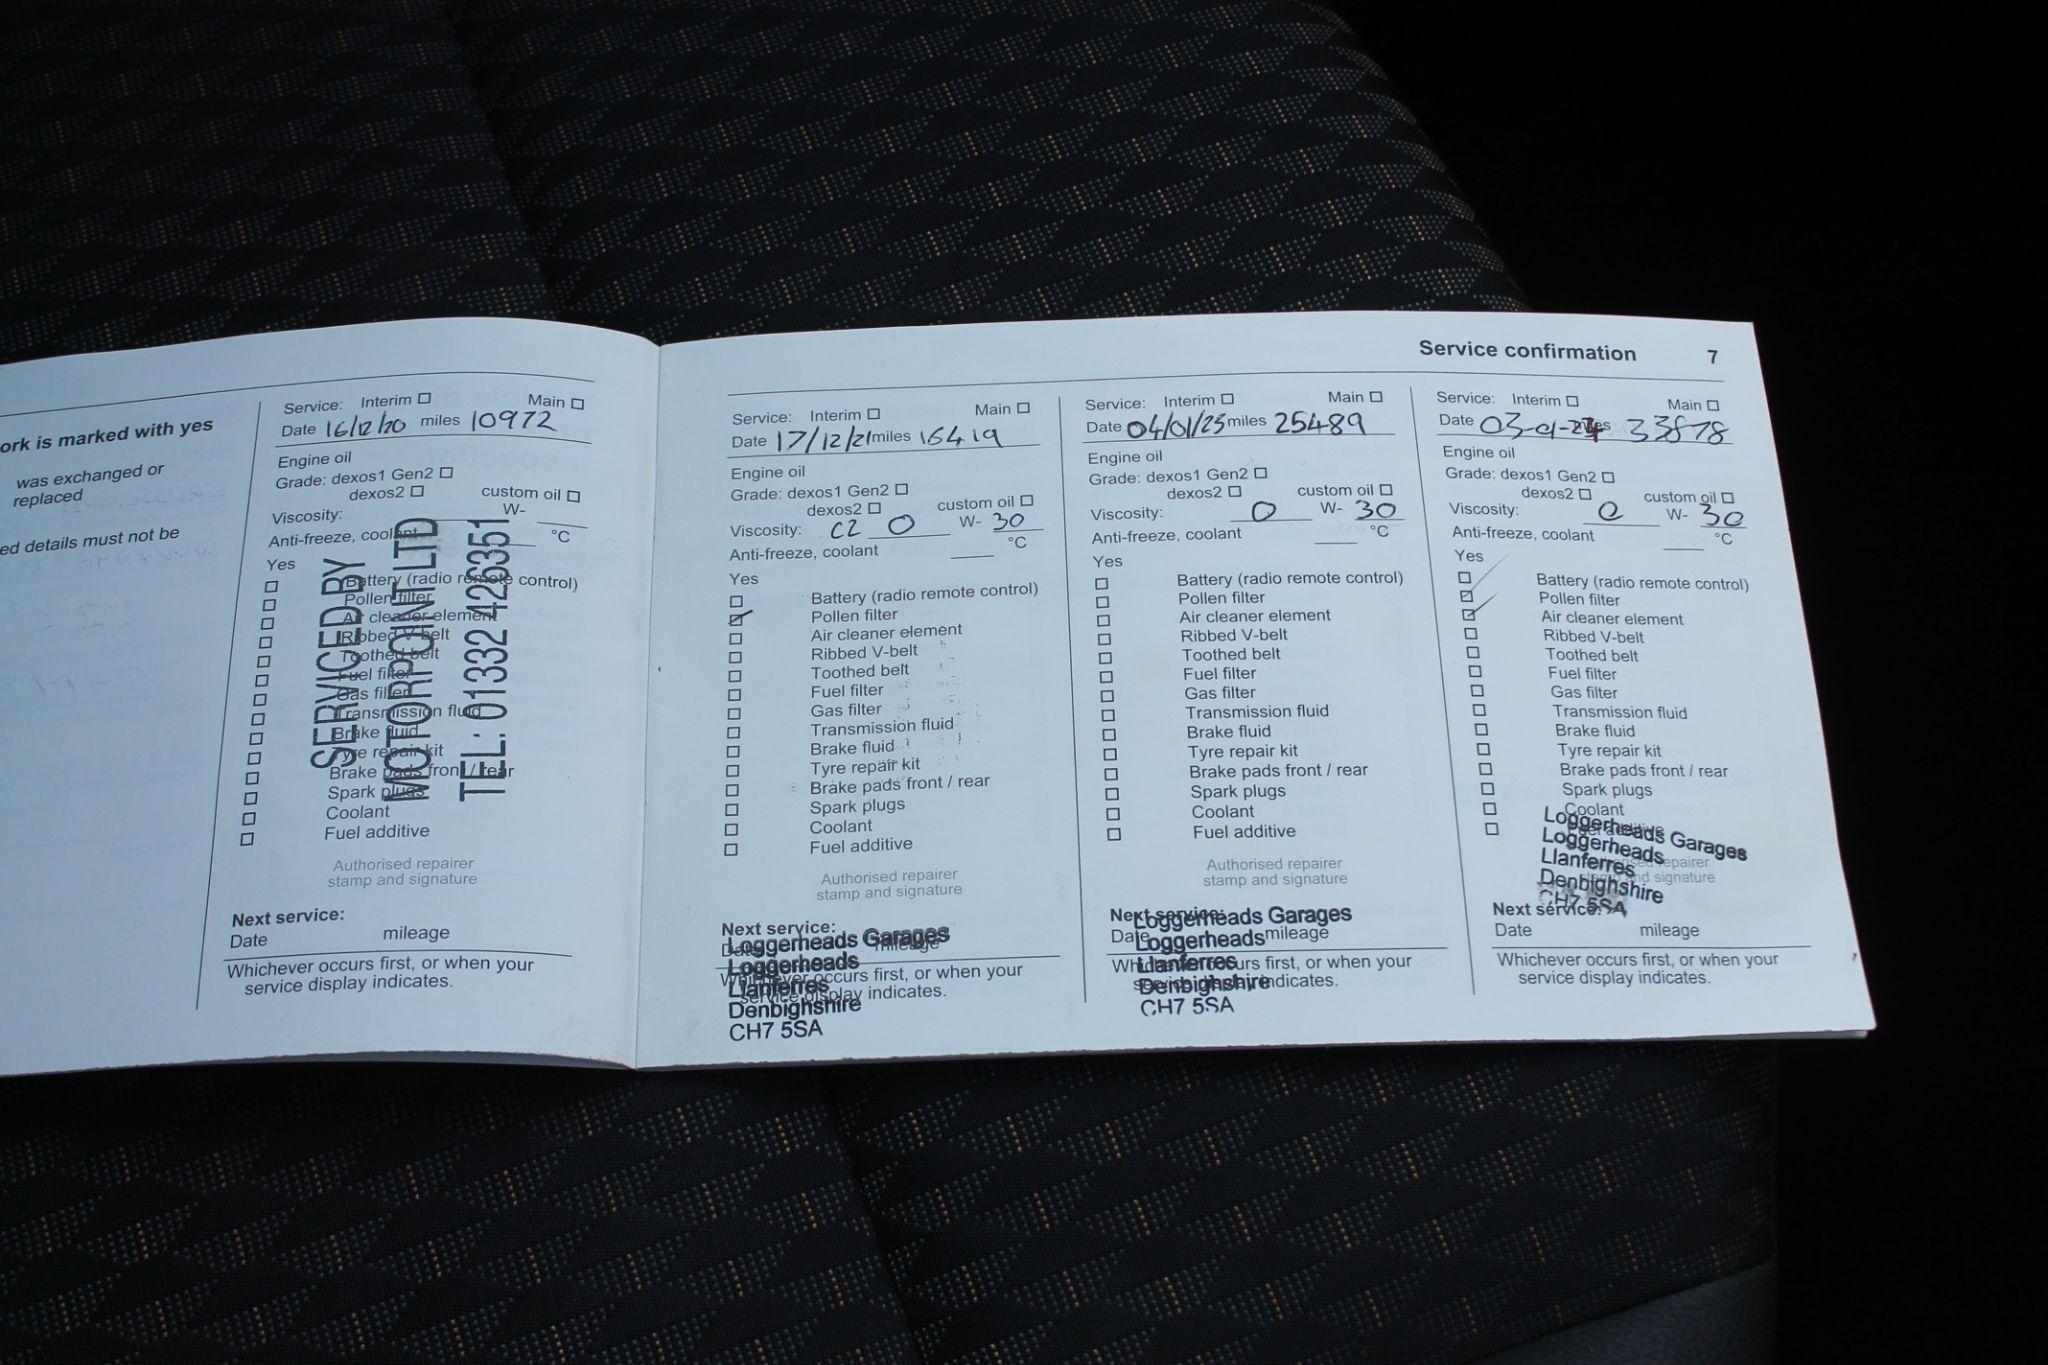 ork is marked with yes
was exchanged or
replaced
ed details must not be
Service: Interim ☐ Main ☐
Date 16/12/20 miles 10972
Engine oil
Grade: dexos1 Gen2 ☐
dexos2 ☐ custom oil ☐
Viscosity: W-
Anti-freeze, coolant °C
Yes
☐ Battery (radio remote control)
☐ Pollen filter
☐ Air cleaner element
☐ Ribbed V-belt
☐ Toothed belt
☐ Fuel filter
☐ Gas filter
☐ Transmission fluid
☐ Brake fluid
☐ Tyre repair kit
☐ Brake pads front / rear
☐ Spark plugs
☐ Coolant
☐ Fuel additive
SERVICED BY
MOTORPOINT LTD
TEL: 01332 426351
Authorised repairer
stamp and signature
Next service:
Date mileage
Whichever occurs first, or when your
service display indicates.
Service confirmation 7
Service: Interim ☐ Main ☐
Date 17/12/21 miles 16419
Engine oil
Grade: dexos1 Gen2 ☐
dexos2 ☐ custom oil ☐
Viscosity: C2 0 W- 30
Anti-freeze, coolant °C
Yes
☐ Battery (radio remote control)
☑ Pollen filter
☐ Air cleaner element
☐ Ribbed V-belt
☐ Toothed belt
☐ Fuel filter
☐ Gas filter
☐ Transmission fluid
☐ Brake fluid
☐ Tyre repair kit
☐ Brake pads front / rear
☐ Spark plugs
☐ Coolant
☐ Fuel additive
Authorised repairer
stamp and signature
Next service:
Date mileage
Whichever occurs first, or when your
service display indicates.
Loggerheads Garages
Loggerheads
Llanferres
Denbighshire
CH7 5SA
Service: Interim ☐ Main ☐
Date 04/01/23 miles 25489
Engine oil
Grade: dexos1 Gen2 ☐
dexos2 ☐ custom oil ☐
Viscosity: 0 W- 30
Anti-freeze, coolant °C
Yes
☐ Battery (radio remote control)
☐ Pollen filter
☐ Air cleaner element
☐ Ribbed V-belt
☐ Toothed belt
☐ Fuel filter
☐ Gas filter
☐ Transmission fluid
☐ Brake fluid
☐ Tyre repair kit
☐ Brake pads front / rear
☐ Spark plugs
☐ Coolant
☐ Fuel additive
Authorised repairer
stamp and signature
Next service:
Date mileage
Whichever occurs first, or when your
service display indicates.
Loggerheads Garages
Loggerheads
Llanferres
Denbighshire
CH7 5SA
Service: Interim ☐ Main ☐
Date 03-01-24 miles 33878
Engine oil
Grade: dexos1 Gen2 ☐
dexos2 ☐ custom oil ☐
Viscosity: 0 W- 30
Anti-freeze, coolant °C
Yes
☐ Battery (radio remote control)
☑ Pollen filter
☑ Air cleaner element
☐ Ribbed V-belt
☐ Toothed belt
☐ Fuel filter
☐ Gas filter
☐ Transmission fluid
☐ Brake fluid
☐ Tyre repair kit
☐ Brake pads front / rear
☐ Spark plugs
☐ Coolant
☐ Fuel additive
Authorised repairer
stamp and signature
Loggerheads Garages
Loggerheads
Llanferres
Denbighshire
CH7 5SA
Next service:
Date mileage
Whichever occurs first, or when your
service display indicates.